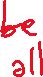 be
all